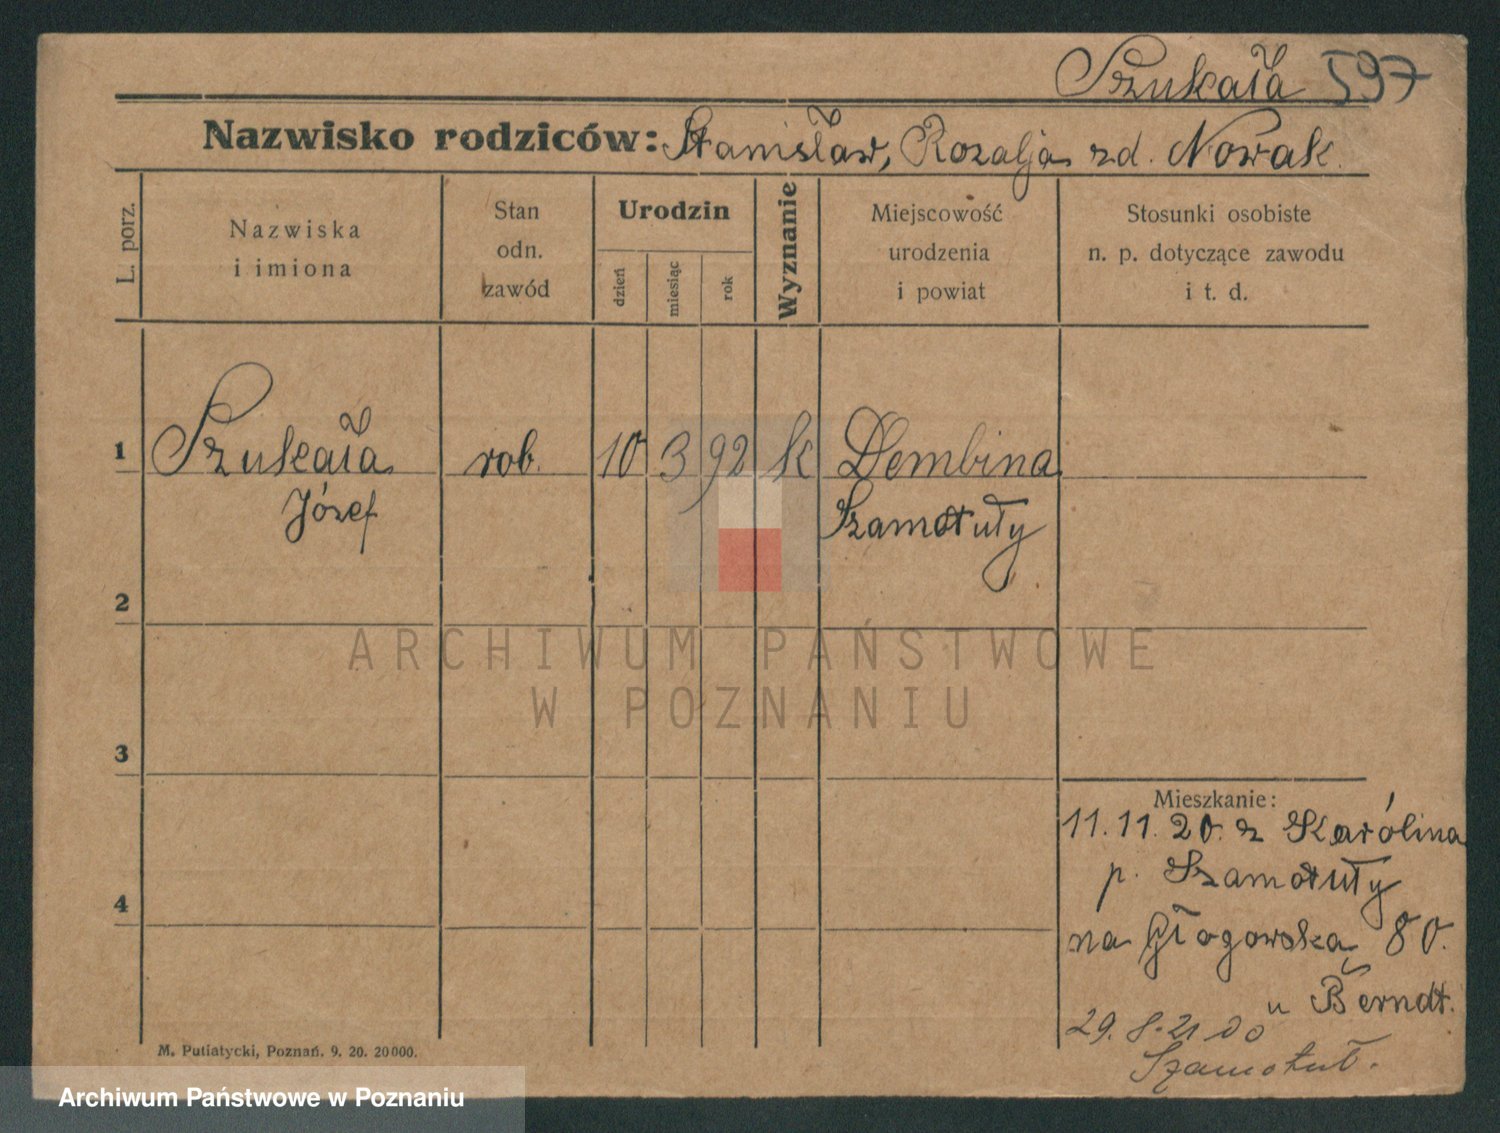 Szukała 597
Nazwisko rodziców: Stanisław, Rozalja zd. Nowak.
L. porz.
Nazwiska
i imiona
Stan
odn.
zawód
Urodzin
dzień
miesiąc
rok
Wyznanie
Miejscowość
urodzenia
i powiat
Stosunki osobiste
n. p. dotyczące zawodu
i t. d.
1 Szukała rob. 10 3 92 k Dembina
Józef Szamotuły
2
ARCHIWUM PAŃSTWOWE
W POZNANIU
3
Mieszkanie:
11.11.20. z Karólina
p. Szamotuły
4
na Głogowska 80.
u Berndt.
29.8.21 do
Szamotuł.
M. Putiatycki, Poznań. 9. 20. 20000.
Archiwum Państwowe w Poznaniu